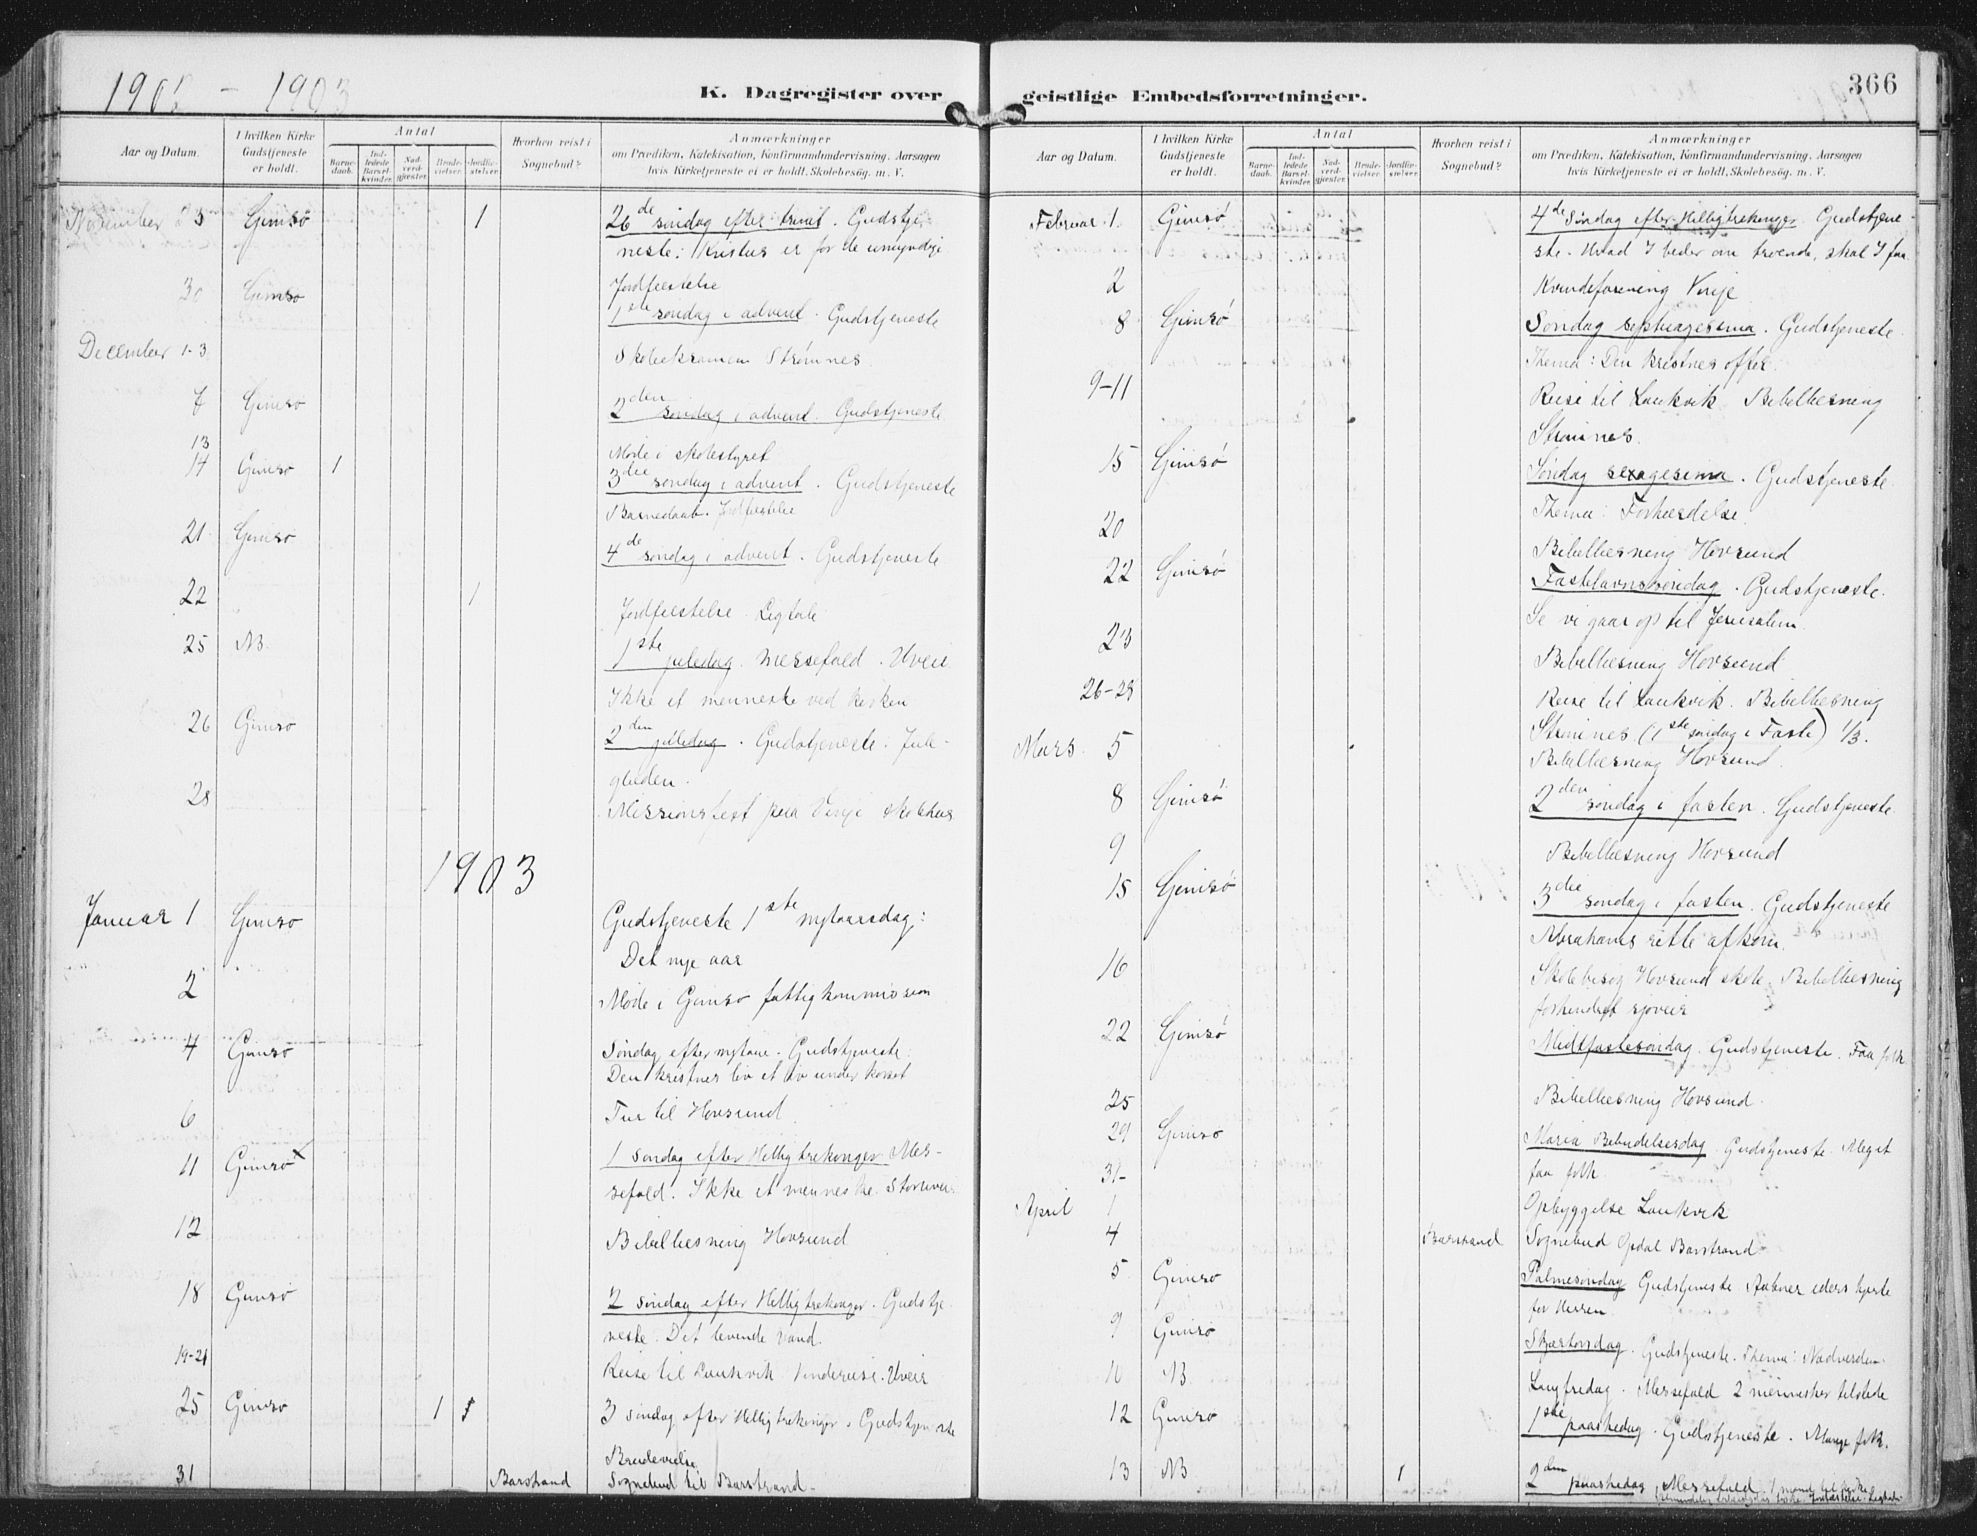 190 - 1903
K. Dagregister over
Aar og Datum.
I hvilken Kirke Gudstjeneste er holdt.
Antal
Barnedaab.
Indledede Barselkvinder.
Nadverdgjester.
Brudevielser.
Jordfæstelser.
Hvorhen reist i Sognebud?
Anmærkninger
om Prædiken, Katekisation, Konfirmandundervisning. Aarsagen
hvis Kirketjeneste ei er holdt. Skolebesøg. m. V.
November 23 Gimsø 1 26de søndag efter trinit. Gudstje
neste: Kristus er for de umyndige
Jordfæstelse
30 Gimsø 1ste søndag i advent. Gudstjeneste
December 1-3 Skoleeksamen Strømnes
7 Gimsø 2den søndag i advent. Gudstjeneste
13 Møde i skolestyret
14 Gimsø 1 3die søndag i advent. Gudstjeneste
Barnedaab. Jordfæstelse
21 Gimsø 4de søndag i advent. Gudstjeneste
22 1 Jordfæstelse. Ligtale
25 NB. 1ste juledag. Messefald. Uveir
Ikke et menneske ved kirken
26 Gimsø 2den juledag. Gudstjeneste. Jule-
glæden.
28 Missionsfest paa Vinje skolehus
1903
Januar 1 Gimsø Gudstjeneste 1ste nytaarsdag:
Det nye aar
2 Møde i Gimsø fattigkommission
4 Gimsø Søndag efter nytaar. Gudstjeneste:
Den kristnes liv et liv under korset
6 Tur til Hovsund
11 Gimsø x 1 søndag efter Helligtrekonger. Mes-
sefald. Ikke et menneske. Storuveir
12 Bibellæsning Hovsund
18 Gimsø 2 søndag efter Helligtrekonger. Gudstje
neste. Det levende vand.
19-21 Reise til Laukvik. Uveir
25 Gimsø 1 3 søndag efter Helligtrekonger. Gudstjeneste
Brudevielse
31 Barstrand Sognebud til Barstrand
geistlige Embedsforretninger.
366
Aar og Datum.
I hvilken Kirke Gudstjeneste er holdt.
Antal
Barnedaab.
Indledede Barselkvinder.
Nadverdgjester.
Brudevielser.
Jordfæstelser.
Hvorhen reist i Sognebud?
Anmærkninger
om Prædiken, Katekisation, Konfirmandundervisning. Aarsagen
hvis Kirketjeneste ei er holdt. Skolebesøg. m. V.
Februar 1. Gimsø 4de Søndag efter Helligtrekonger. Gudstjene-
ste. Hvad I beder om troende, skal I faa
2 Kvindeforening Vinje
8 Gimsø Søndag septuagesima. Gudstjeneste.
Thema: Den kristnes offer.
9-11 Reise til Laukvik. Bibellæsning
Strømnes.
15 Gimsø Søndag sexagesima. Gudstjeneste.
Thema: Forhærdelse.
20 Bibellæsning Hovsund
22 Gimsø Fastelavnssøndag. Gudstjeneste.
Se vi gaar op til Jerusalem.
23 Bibellæsning Hovsund
26-28 Reise til Laukvik. Bibellæsning
Strømnes. (1ste søndag i Faste) 1/3.
Mars. 5 Bibellæsning Hovsund.
8 Gimsø 2den søndag i fasten. Gudstjeneste.
9 Bibellæsning Hovsund
15 Gimsø 3die søndag i fasten. Gudstjeneste
Abrahams rette afkom.
16 Skolebesøg Hovsund skole. Bibellæsning
forhindret sjøveis
22 Gimsø Midtfastesøndag. Gudstjeneste. Faa folk
25 Bibellæsning Hovsund.
29 Gimsø Maria Bebudelsesdag. Gudstjeneste. Meget
faa folk.
31-
April 1 Opbyggelse Laukvik
4 Barstrand Sognebud Opdal Barstrand
5 Gimsø Palmesøndag Gudstjeneste. Aabner eders hjerte
for Herren.
9 Gimsø Skjærtorsdag. Gudstjeneste. Thema: Nadverden.
10 NB Langfredag. Messefald 2 mennesker tilstede
12 Gimsø 1ste paaskedag. Gudstjeneste. Mange folk.
13 NB 1 2den paaskedag. Messefald. 1 mand til kirke
Jordfæstelse. Ligtale